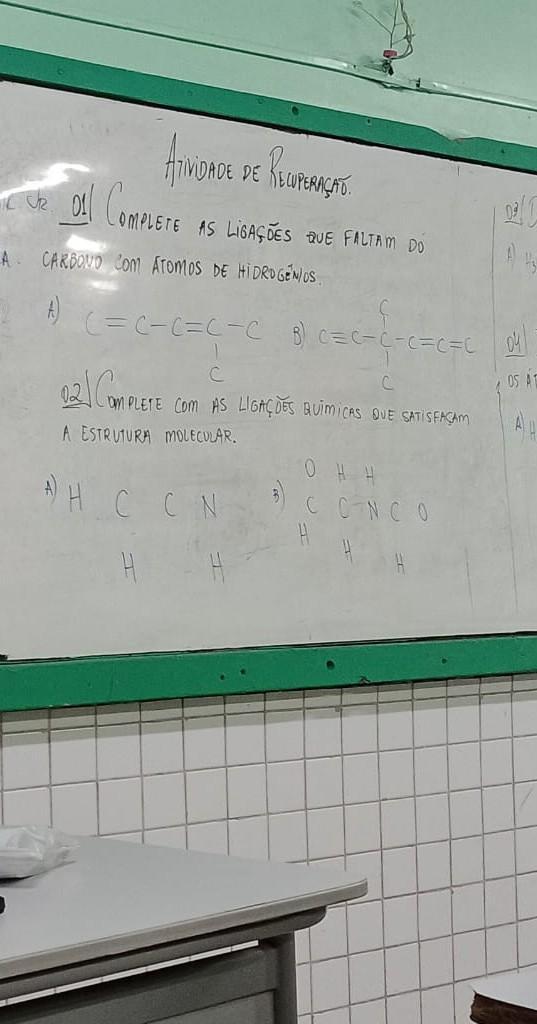 ATIVIDADE DE RECUPERAÇÃO.
01) COMPLETE AS LIGAÇÕES QUE FALTAM DO
CARBONO COM ÁTOMOS DE HIDROGÊNIOS.
A) C=C-C=C-C
C
B) C≡C-C-C=C=C
C
C
02) COMPLETE COM AS LIGAÇÕES QUÍMICAS QUE SATISFAÇAM
A ESTRUTURA MOLECULAR.
A) H C C N
H H
B) O H H
C C N C O
H H H
03)
A) H
04)
OS
A) H